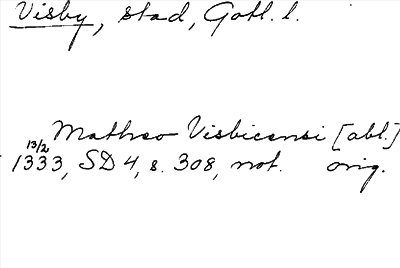 Visby, stad, Gotl. l.
Matheo Visbicensi [abl.]
13/2
1333, SD 4, s. 308, not. orig.